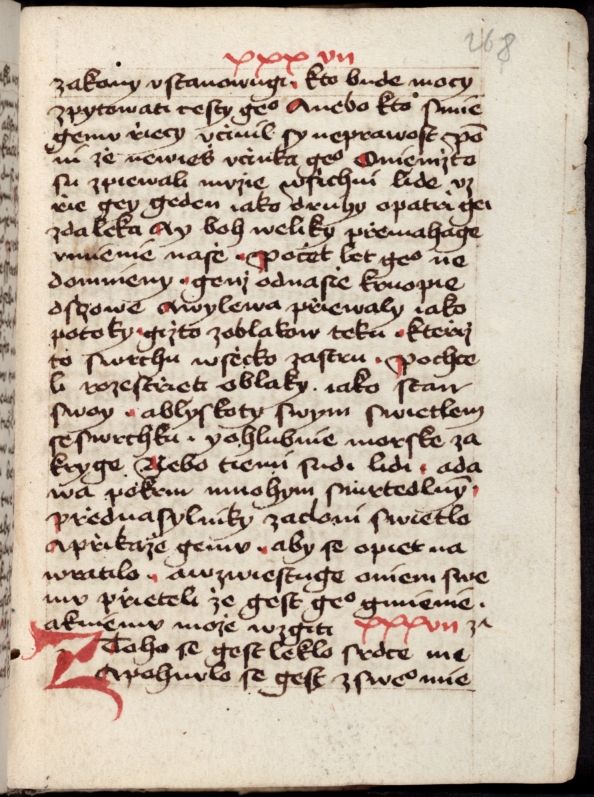 268
xxxvii
zakony vstanowugi. kto bude mocy
zpytowati cesty geo Anebo kto smie
gemu řiecy vcinil sy neprawost Po
ni že newieš vcinka geo Oniemžto
su zpiewali muzie wsichni lide vz
řie gey geden iako druhy opatři gei
zdaleka Ay boh weliky přemahage
vmienie naše. Počet let geo ne
domnieny. genž odnasie kruopie
dszowe Awylewa přiewaly iako
potoky. gižto zoblakow teku. kteriž
to swrchu wsecko zastru. Pochce
li rozestřieti oblaky. iako stan
swoy. ablyskoty swym swietlem
seswrchku. yohlubnie morske za
kryge Nebo tiemi sudi lidi. ada
wa pokrm mnohym smrtedlny.
přednasylniky zacloni swietlo
Apřikaže gemu. aby se opiet na
wratilo. awzwiestuge oniem swe
mu přieteli že gest geo gmienie.
akniemu može wzgiti xxxvii za
Ztoho se gest leklo srdce me
Apohnulo se gest zsweo mie